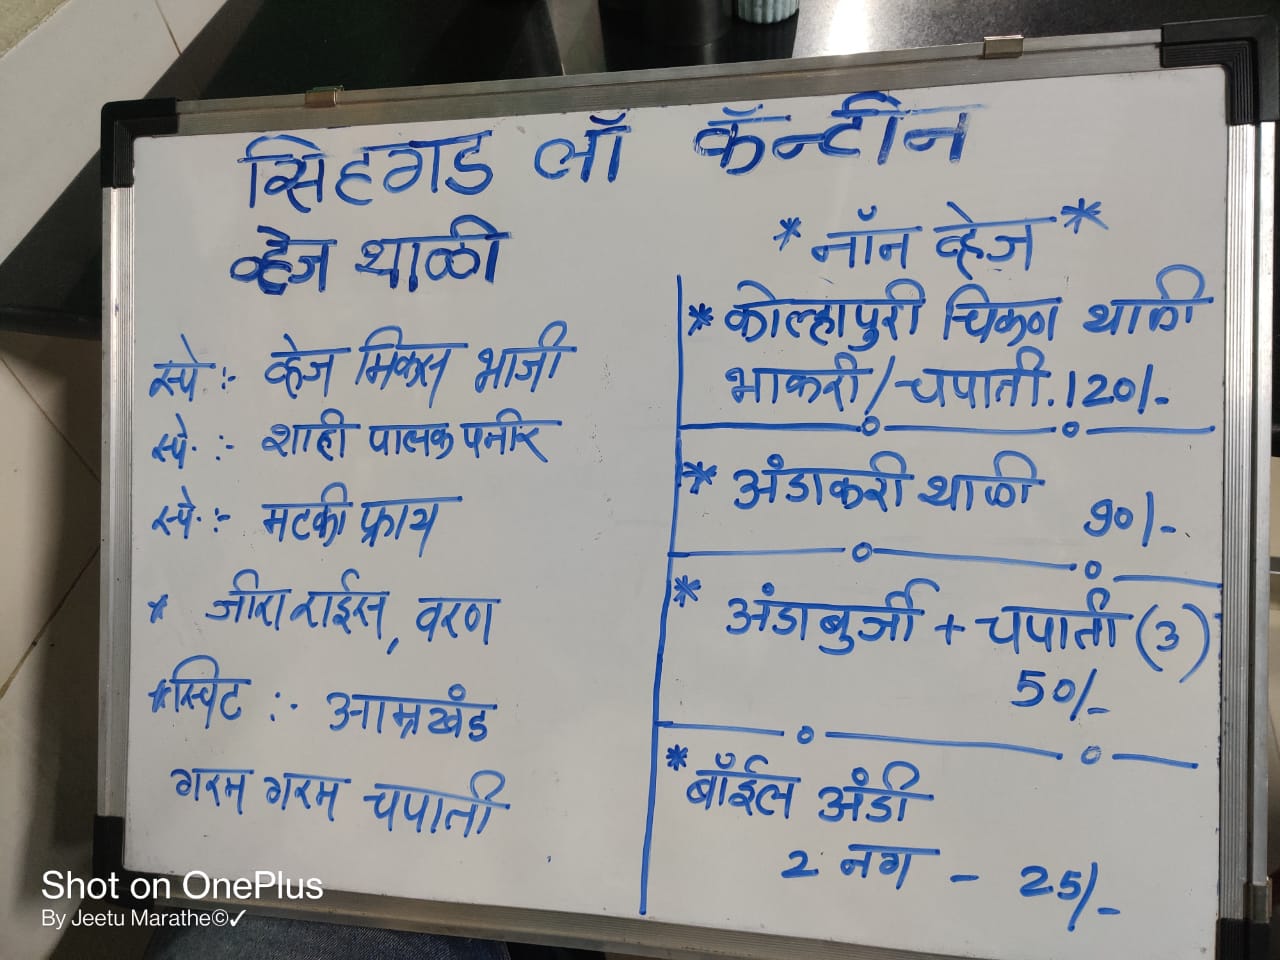 सिंहगड लॉ कॅन्टीन
व्हेज थाळी
स्पे :- व्हेज मिक्स भाजी
स्पे. :- शाही पालक पनीर
स्पे. :- मटकी फ्राय
* जीरा राईस, वरण
* स्विट :- आम्रखंड
गरम गरम चपाती
* नॉन व्हेज *
* कोल्हापुरी चिकण थाळी
भाकरी/चपाती. 120/-
* अंडाकरी थाळी
90/-
* अंडा बुर्जी + चपाती (3)
50/-
* बॉईल अंडी
2 नग - 25/-
Shot on OnePlus
By Jeetu Marathe©✓